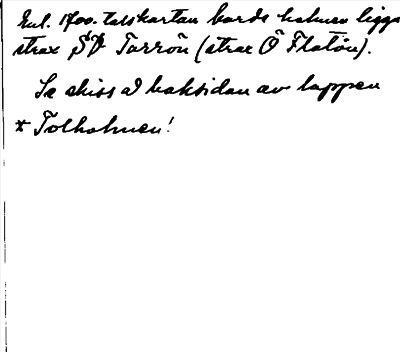 Enl. 1700-talskartan borde holmen ligga
strax SV Torrön (strax Ö Flatön).
Se skiss å baksidan av lappen
* Tolholmen!